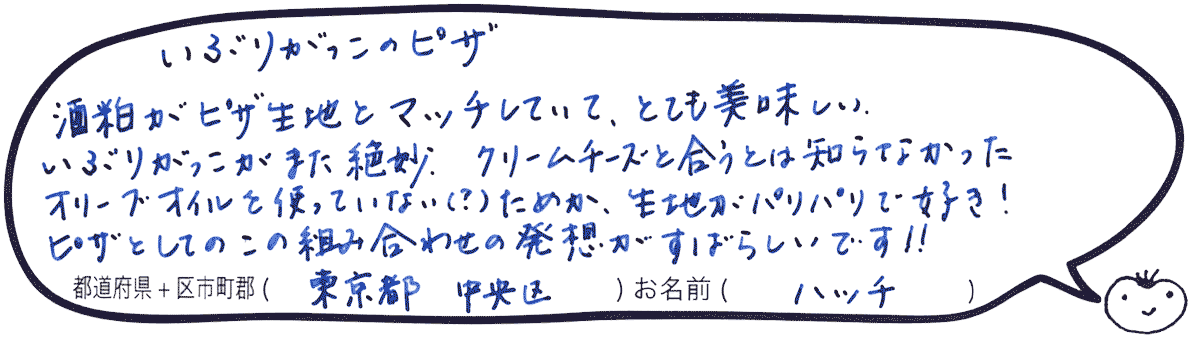 いぶりがっこのピザ
酒粕がピザ生地とマッチしていて、とても美味しい.
いぶりがっこがまた絶妙. クリームチーズと合うとは知らなかった
オリーブオイルを使っていない(?)ためか、生地がパリパリで好き!
ピザとしてのこの組み合わせの発想がすばらしいです!!
都道府県+区市町郡( 東京都 中央区 )お名前( ハッチ )